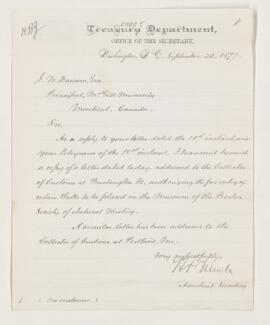 Treasury Department,
OFFICE OF THE SECRETARY,
Washington, D. C., September 22, 1877.
J. W. Dawson Esq.
Principal, McGill University
Montreal, Canada.
Sir:
As a reply to your letter dated the 10th instant and
your telegram of the 18th instant, I transmit herewith
a copy of a letter dated today, addressed to the Collector
of Customs at Burlington Vt. authorizing the free entry of
certain Shells to be placed in the Museum of the Boston
Society of Natural History.
A similar letter has been addressed to the
Collector of Customs at Portland, Me.
Very respectfully,
Assistant Secretary